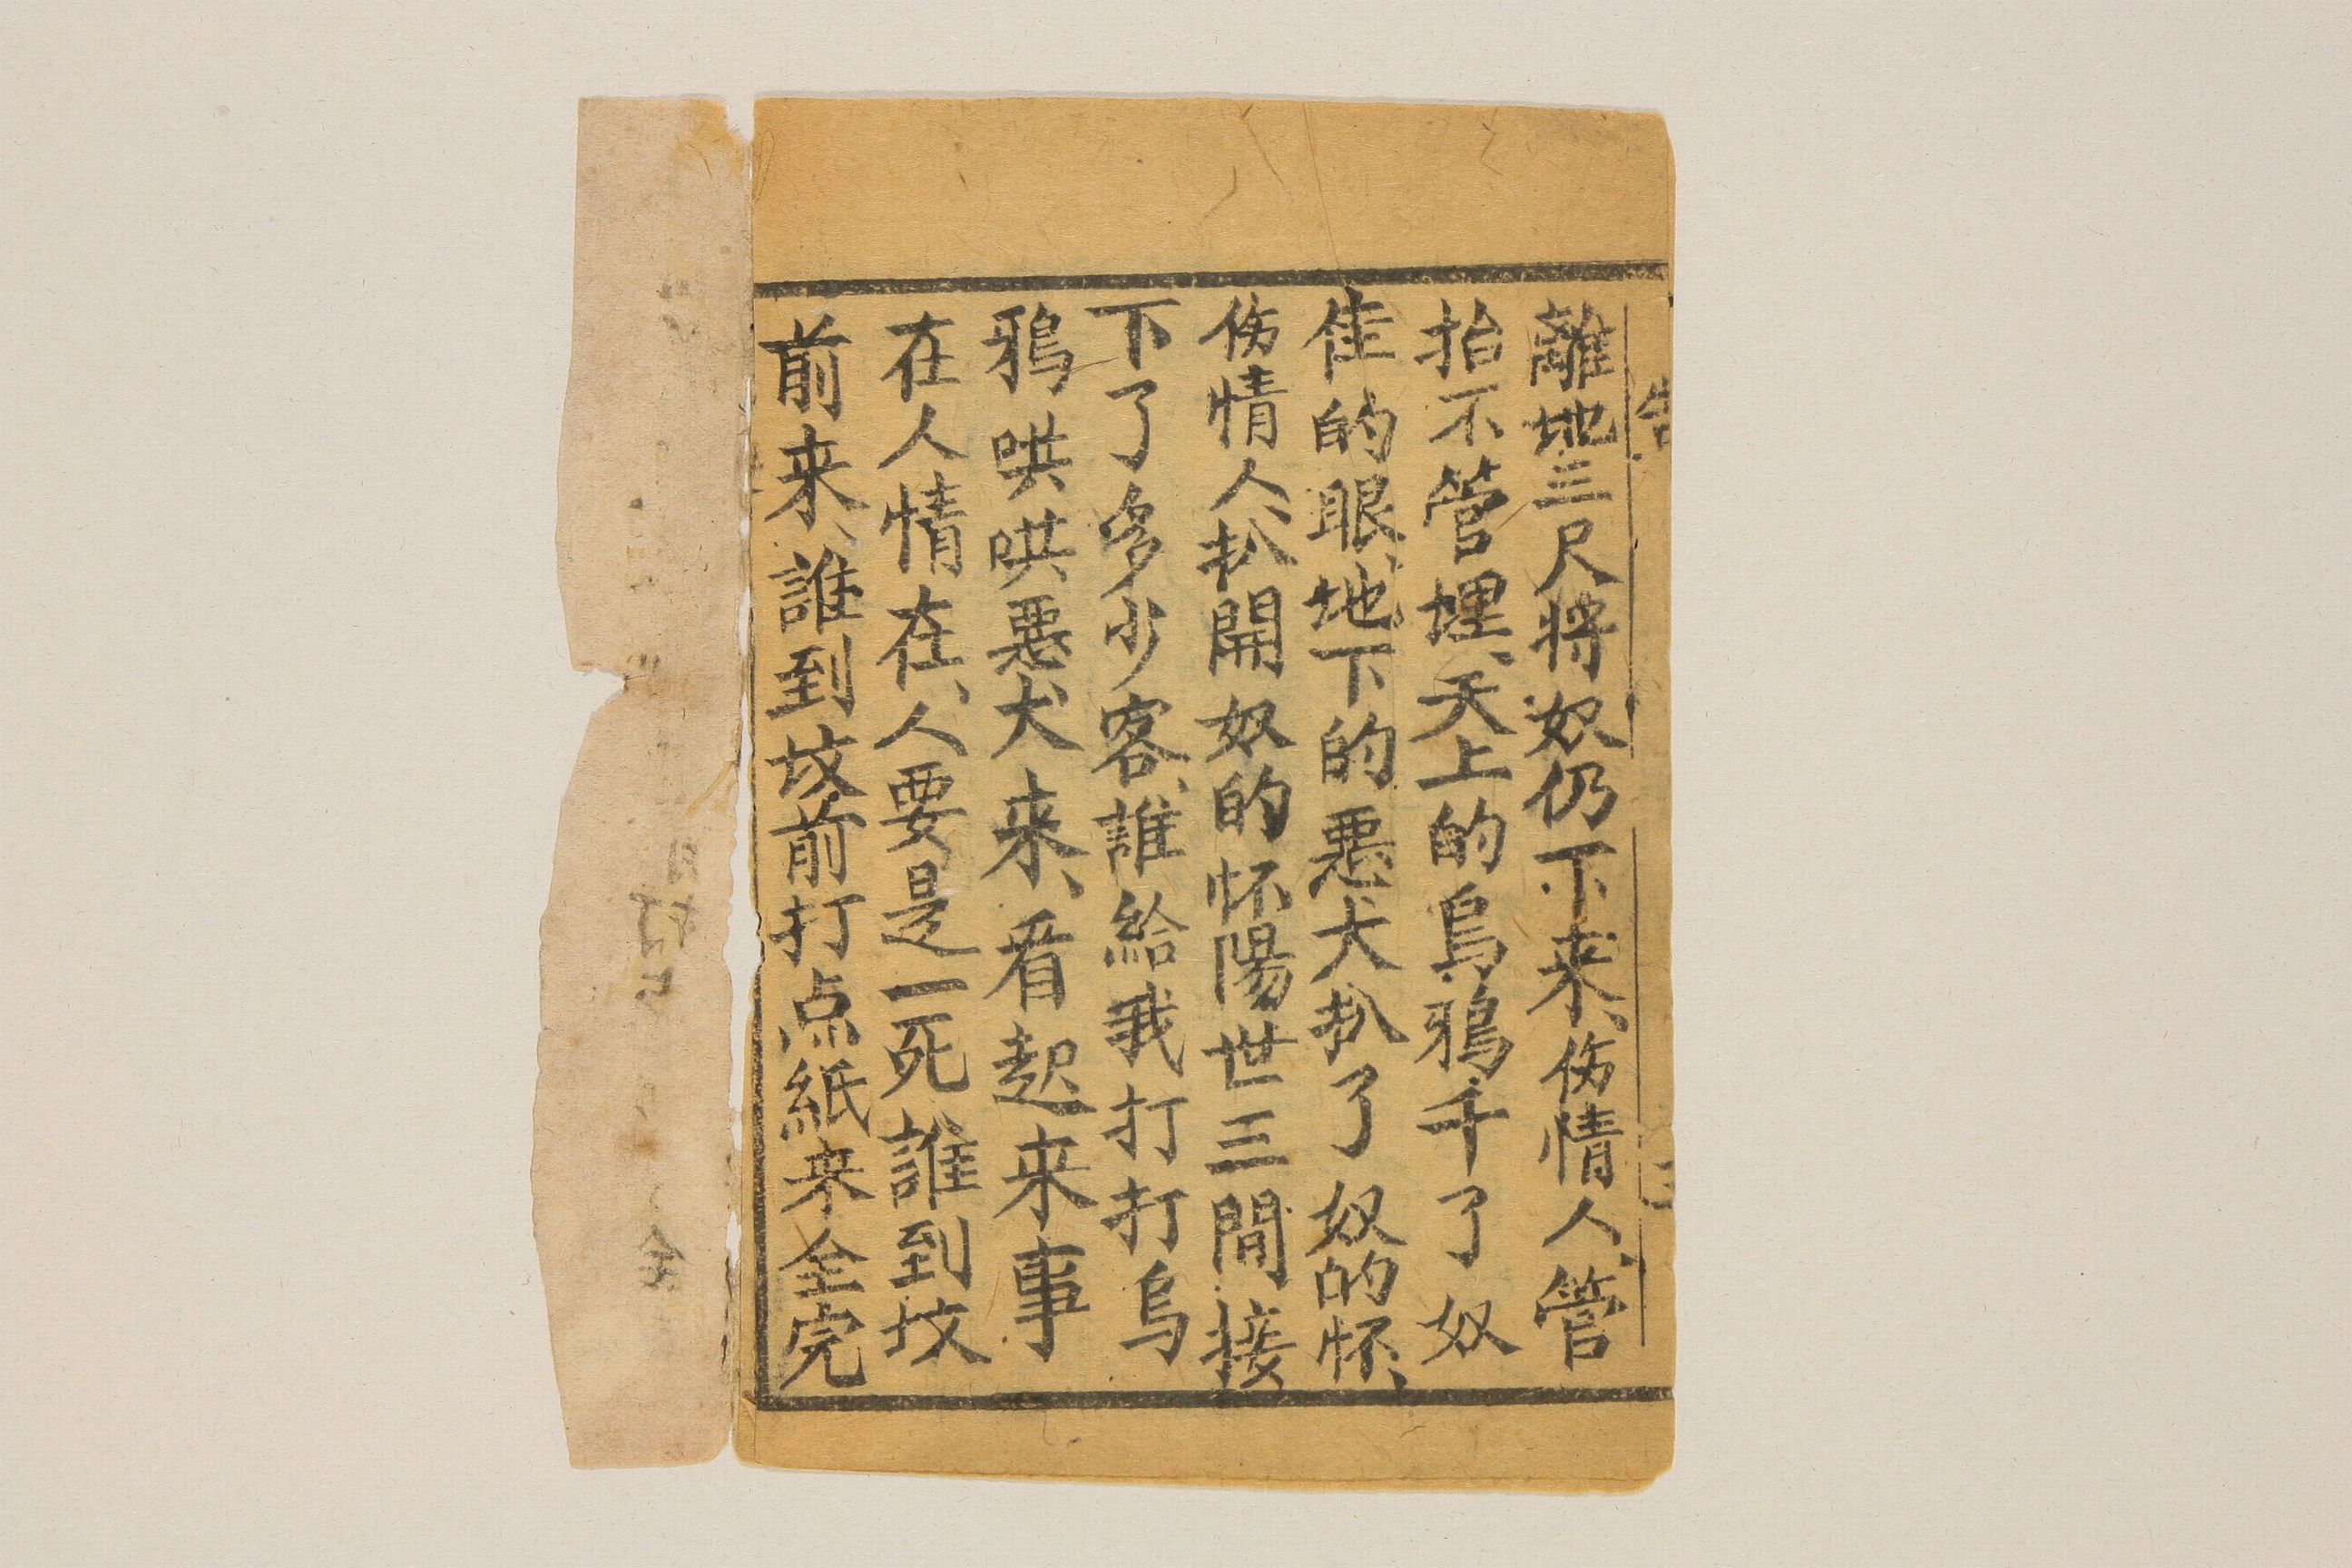 離地三尺將奴仍下来、伤情人、管
抬不管埋、天上的烏鴉千了奴
隹的眼、地下的惡犬扒了奴的怀、
伤情人、扒開奴的怀陽世三間接
下了多少客、誰給我打打烏
鴉哄哄惡犬来、看起来事
在人情在、人要是一死誰到坟
前来、誰到坟前打点紙来全完